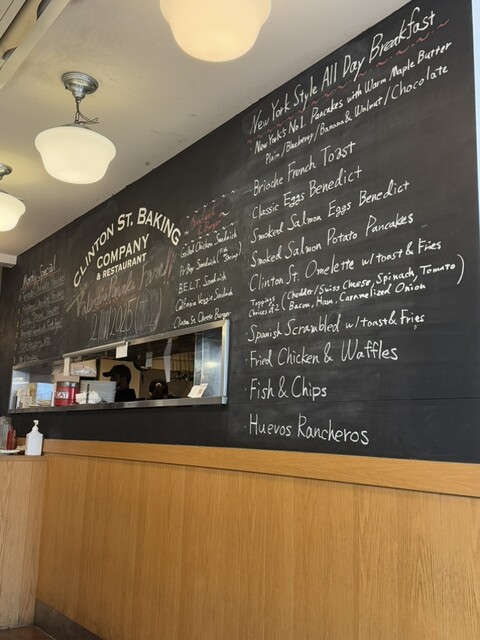 New York Style All Day Breakfast
New York's No1. Pancakes with Warm Maple Butter
Plain / Blueberry / Banana & Walnut / Chocolate
Brioche French Toast
Classic Eggs Benedict
Smoked Salmon Eggs Benedict
Smoked Salmon Potato Pancakes
Clinton St. Omelette w/ toast & Fries
Toppings (Cheddar/Swiss Cheese, Spinach, Tomato
Choices of 2 Bacon, Ham, Caramelized Onion)
Spanish Scrambled w/ toast & Fries
· Fried Chicken & Waffles
· Fish & Chips
· Huevos Rancheros
CLINTON ST. BAKING
COMPANY
& RESTAURANT
Grilled Chicken Sandwich
Po'Boy Sandwich
B.E.L.T. Sandwich
California Veggie Sandwich
Clinton St. Cheese Burger
EAT